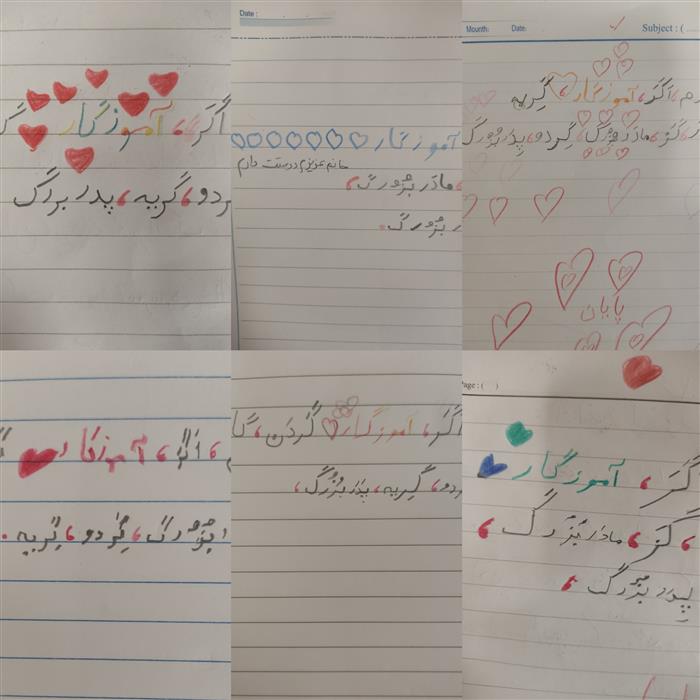 اگَر، آموزگار
ردو، گربه، پدر بزرگ
Date :
آموزگار
خانم عزیزم دوستت دارم
، مادَر بُزُورگ،
بُزُرگ.
Mounth:
Date:
Subject : (
م، اَگَر، آموزگار، گُربه
گَز، مادَر بُزُرگ، گِردو، پِدَر بُزُورگ
پایان
، اَگَر، آموزگار
بُزُورگ، گِردو، گُربه.
اَگَر، آموزگار، گَردَن، گا
ردو، گُربه، پِدَر بُزُرگ،
Page : ( )
گَر، آموزگار
، گَز، مادَر بُزُرگ،
پِدَر بُزُرگ،